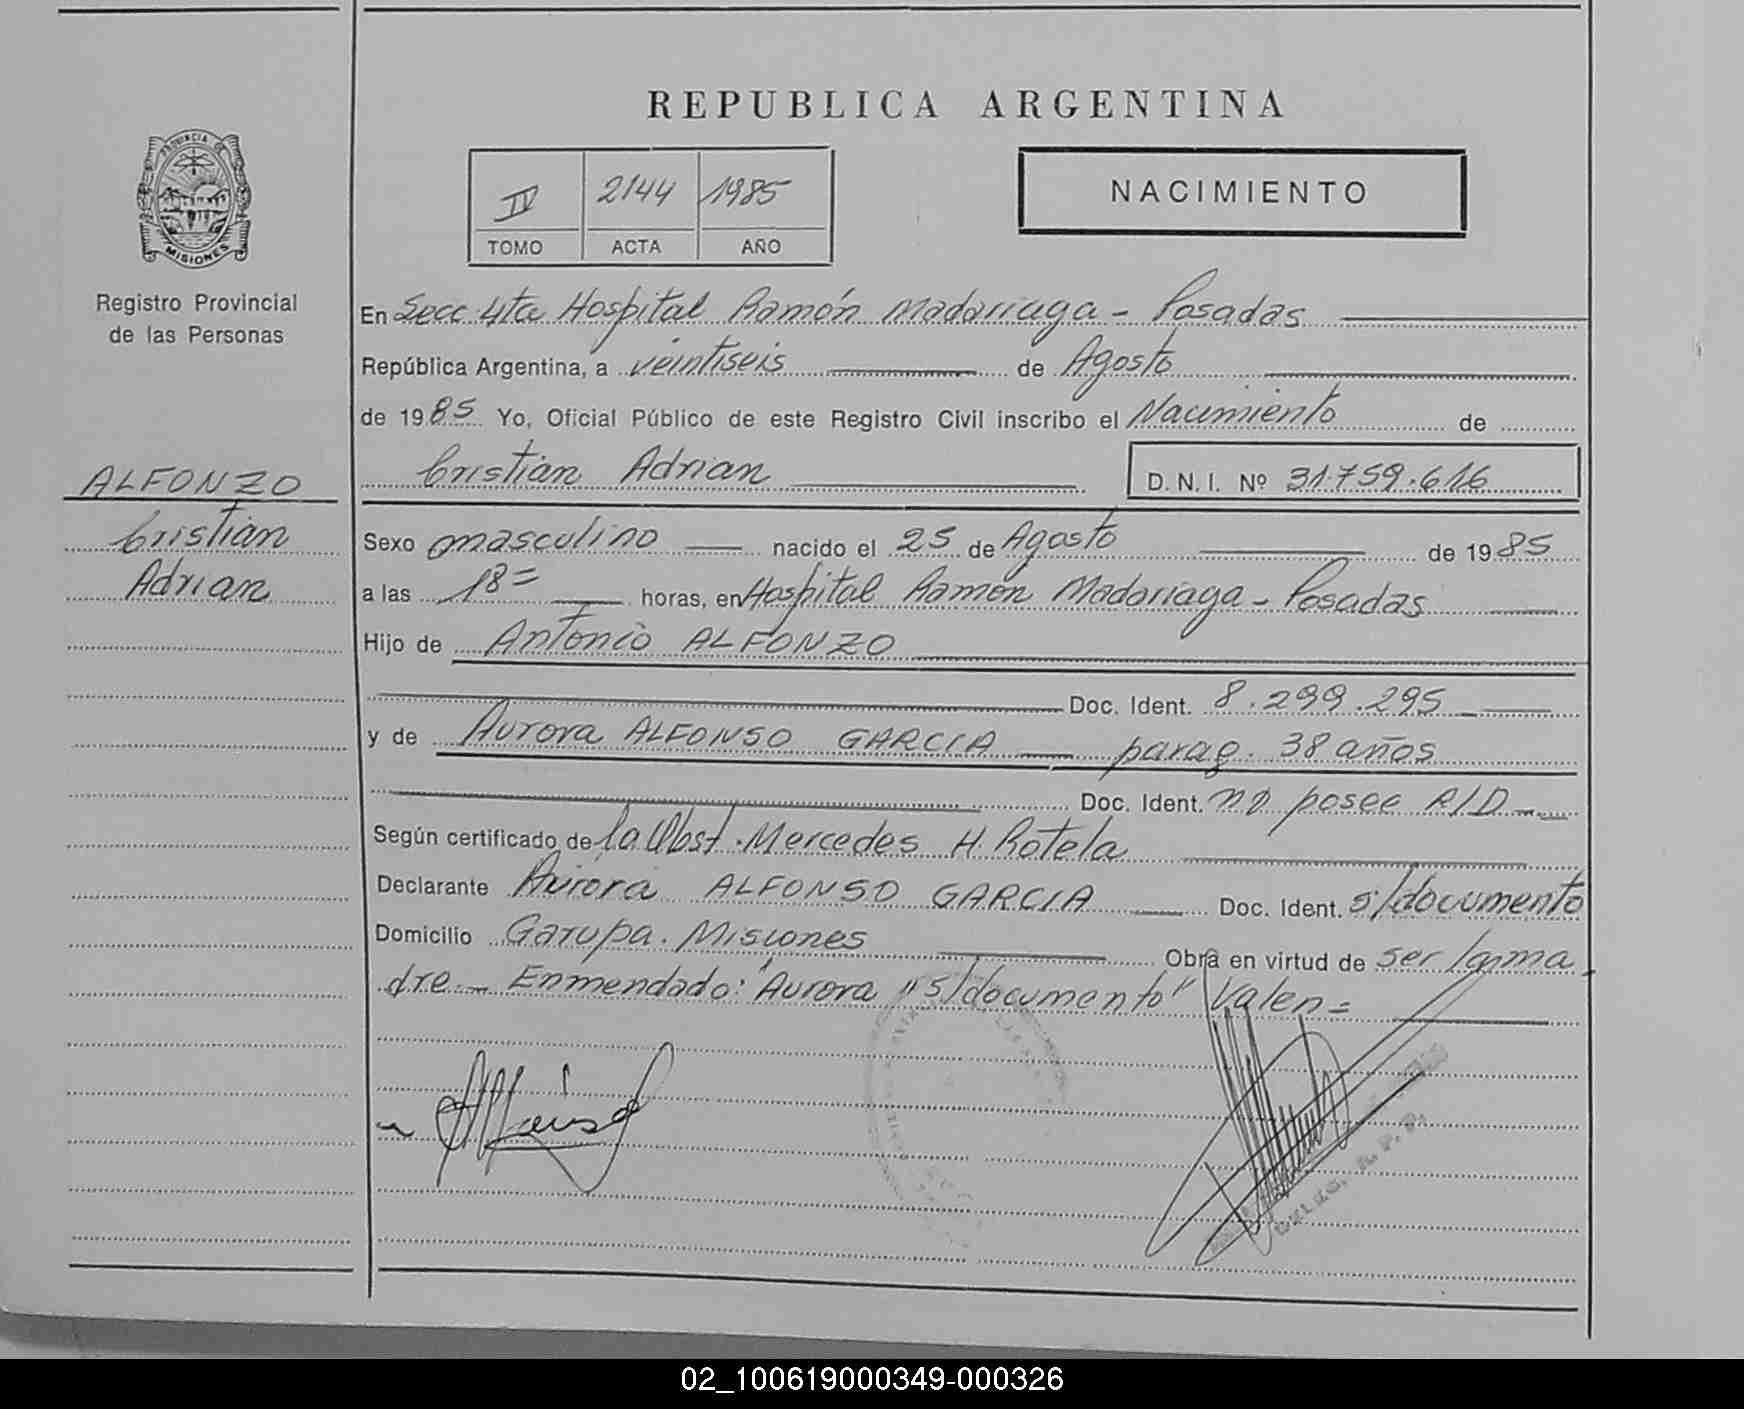 REPUBLICA ARGENTINA
PROVINCIA DE
MISIONES
Registro Provincial
de las Personas
IV 2144 1985
TOMO ACTA AÑO
NACIMIENTO
En Secc 4ta Hospital Ramón Madariaga - Posadas
República Argentina, a veintiseis de Agosto
de 1985 Yo, Oficial Público de este Registro Civil inscribo el Nacimiento de
Cristian Adrian D.N.I. Nº 31.759.616
ALFONZO
Cristian
Adrian
Sexo masculino nacido el 25 de Agosto de 1985
a las 18= horas, en Hospital Ramón Madariaga - Posadas
Hijo de Antonio ALFONZO
Doc. Ident. 8.299.295
y de Aurora ALFONSO GARCIA parag. 38 años
Doc. Ident. no posee R/D
Según certificado de la Obst. Mercedes H. Rotela
Declarante Aurora ALFONSO GARCIA Doc. Ident. s/documento
Domicilio Garupa. Misiones Obra en virtud de ser la ma
dre - Enmendado: "Aurora "s/documento" Valen=
02_100619000349-000326